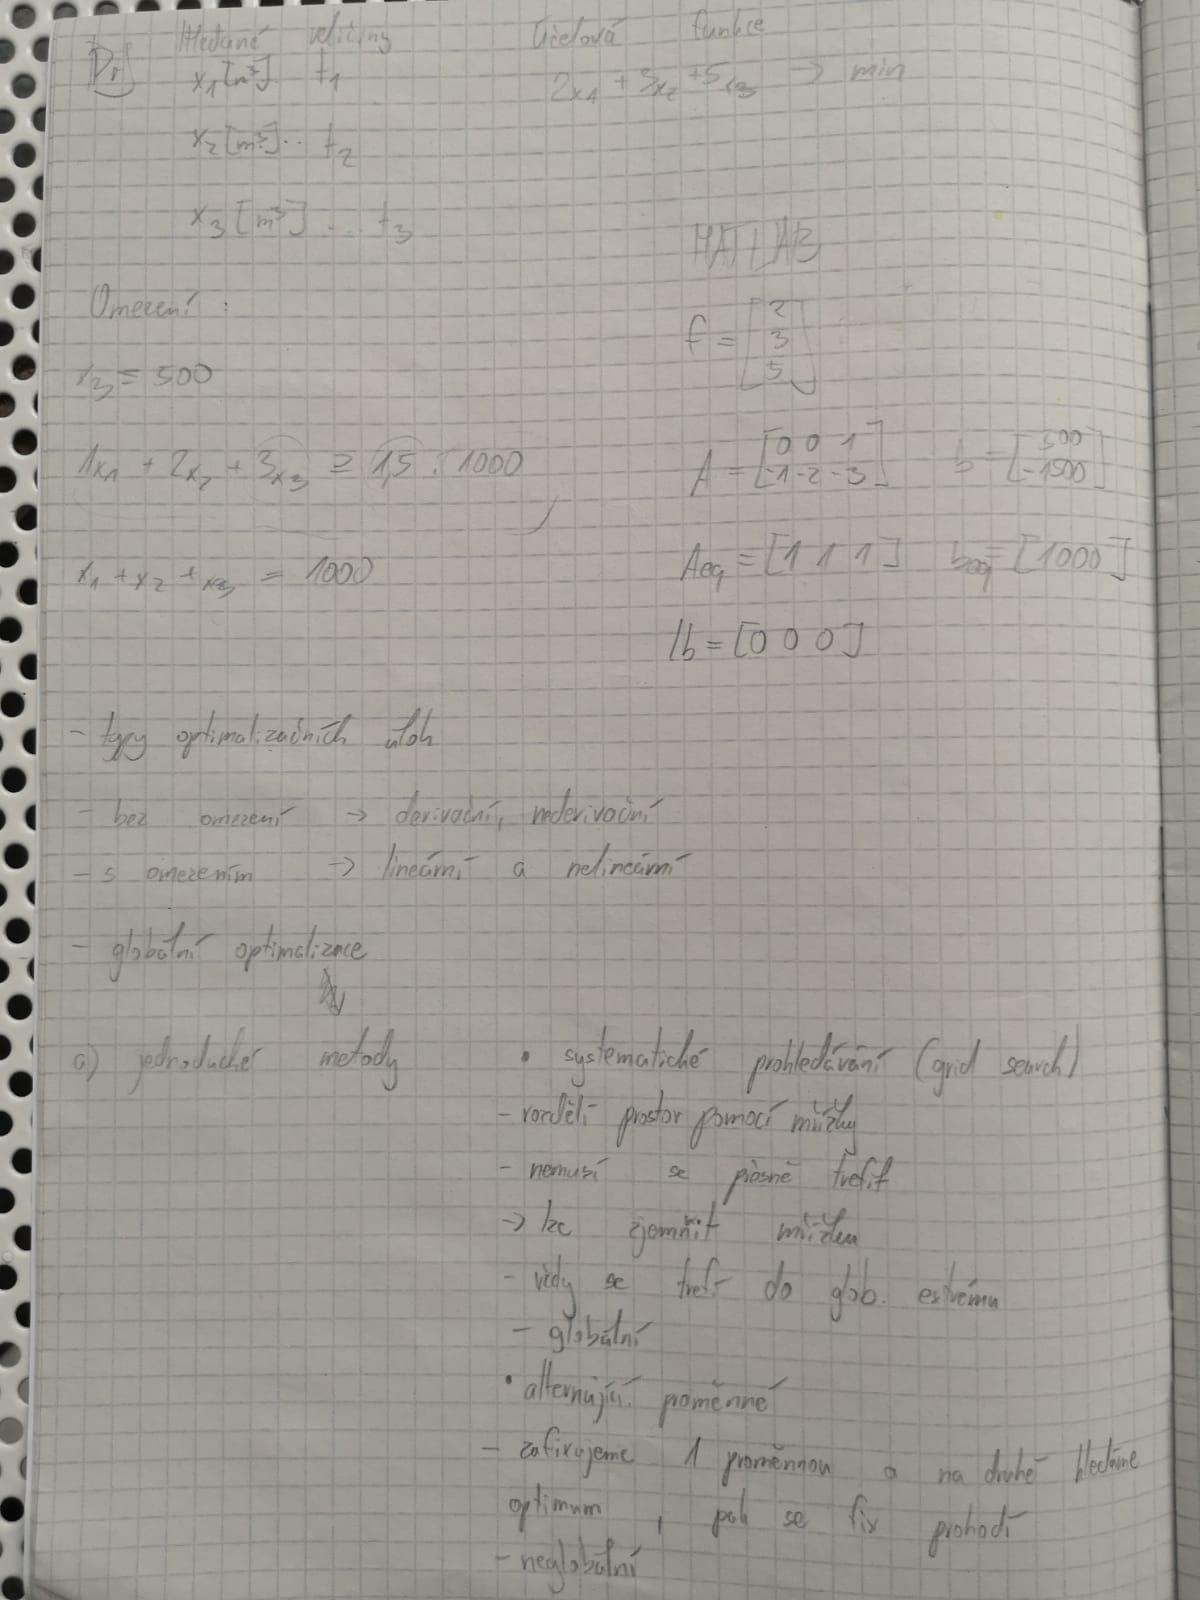 Př
Hledané veličiny
x1 [m³] t1
x2 [m³].. t2
x3 [m³] ... t3
Účelová funkce
2x1 + 3x2 + 5x3 → min
Omezení :
x3 = 500
1x1 + 2x2 + 3x3 ≥ 1,5 . 1000
x1 + x2 + x3 = 1000
MATLAB
f = [2 3 5]
A = [0 0 1 -1 -2 -3] b = [500 -1500]
Aeq = [1 1 1] beq = [1000]
lb = [0 0 0]
- typy optimalizačních úloh
- bez omezení → derivační, nederivační
- s omezením → lineární a nelineární
- globální optimalizace
a) jednoduché metody
• systematické prohledávání (grid search)
- rozdělí prostor pomocí mřížky
- nemusí se přesně trefit
→ lze zjemnit mřížku
- vždy se trefí do glob. extrému
- globální
• alternující proměnné
- zafixujeme 1 proměnnou a na druhé hledáme
optimum , pak se fix prohodí
- neglobální